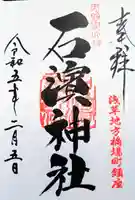 奉拝
浅草地方橋場町鎮座
石濱神社
令和五年二月五日